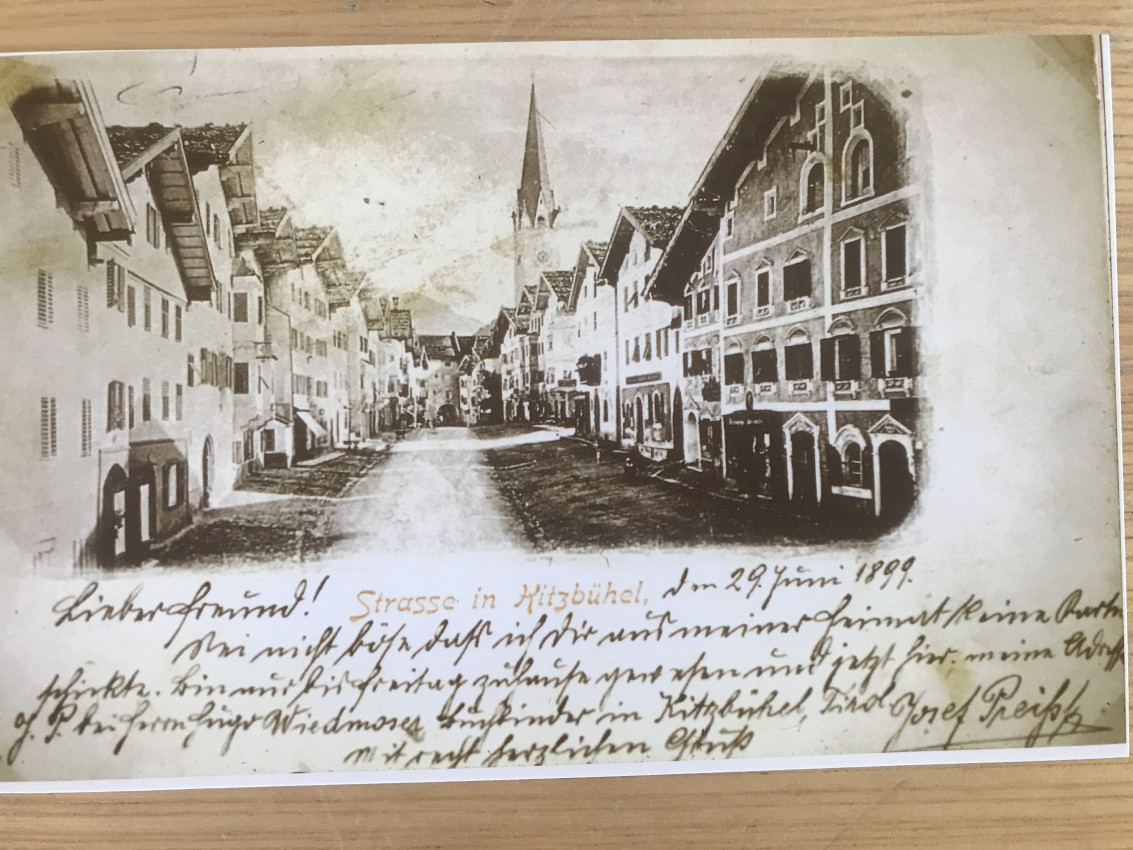 Lieber Freund!
Strasse in Kitzbühel, den 29. Juni 1899.
Sei nicht böse daß ich dir aus meiner Heimat keine Karte
schickte. Bin nur bis Freitag zuhause gewesen und jetzt hier. meine Adresse
J. P. bei Herrn Hugo Wiedmoser Buchbinder in Kitzbühel, Tirol
Mit recht herzlichen Gruß
Josef